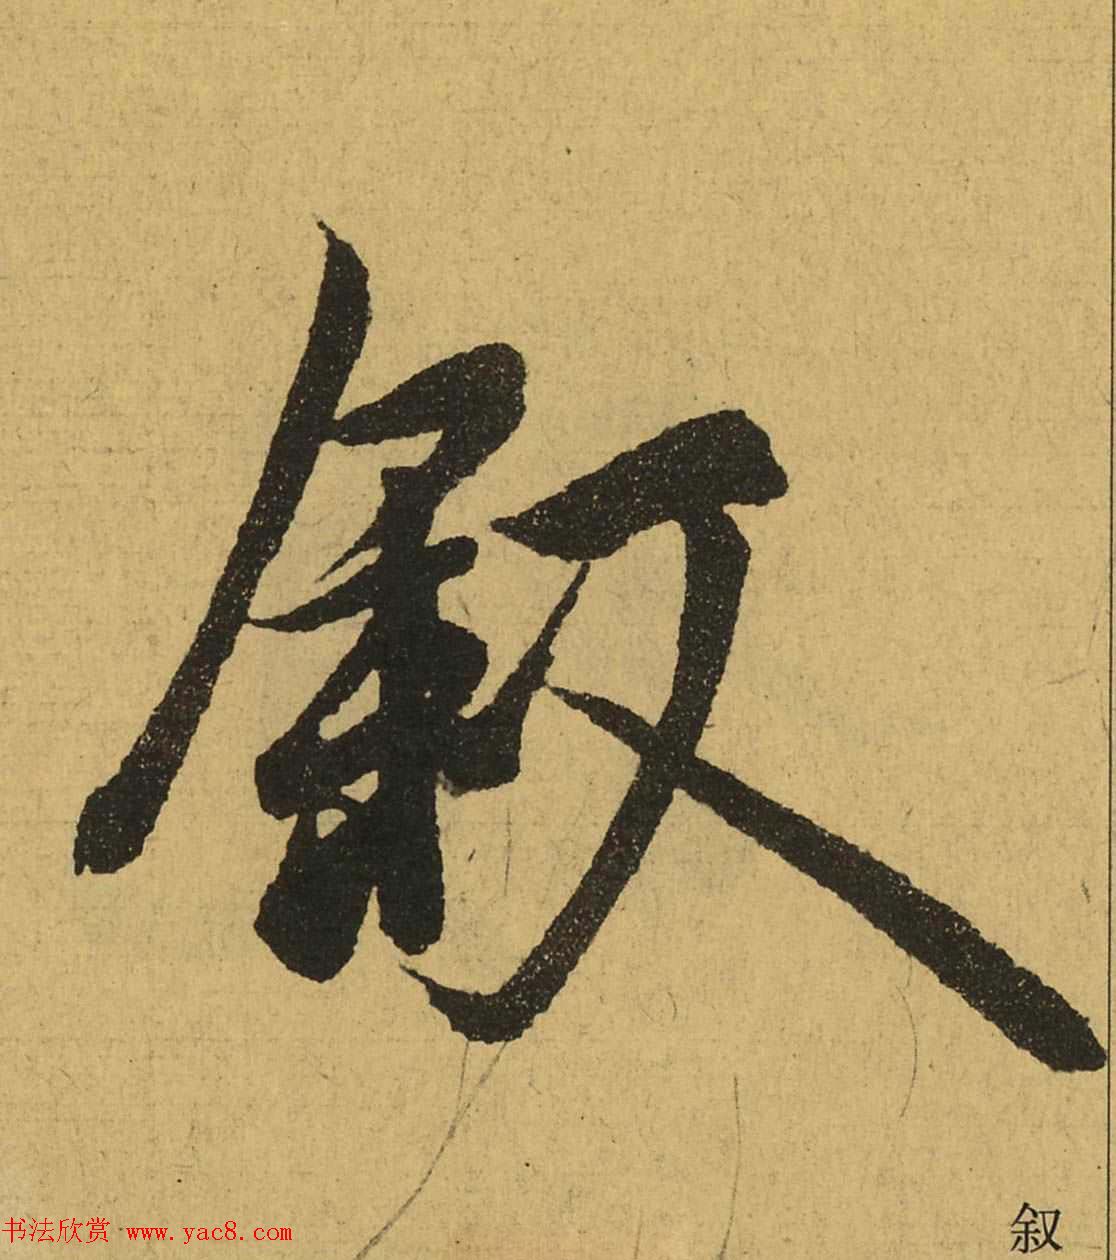 叙
书法欣赏 www.yac8.com
叙